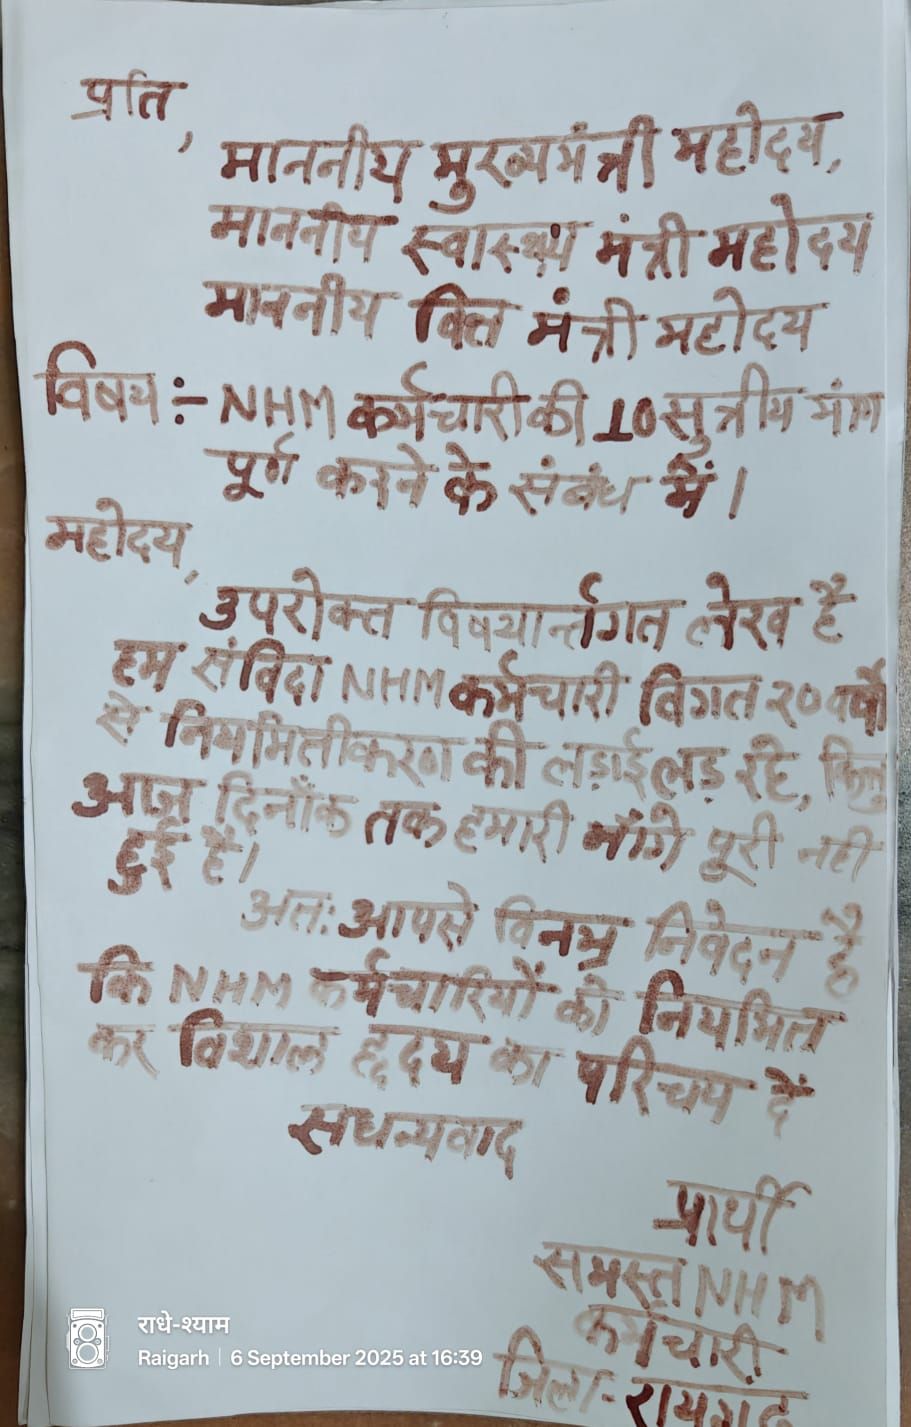 प्रति,
माननीय मुख्यमंत्री महोदय,
माननीय स्वास्थ्य मंत्री महोदय
माननीय वित्त मंत्री महोदय
विषय :- NHM कर्मचारी की 10 सुत्रीय मांग
पूर्ण करने के संबंध में।
महोदय,
उपरोक्त विषयार्न्तगत लेख है
हम संविदा NHM कर्मचारी विगत २० वर्षो
से नियमितीकरण की लड़ाई लड़ रहे, किन्तु
आज दिनाँक तक हमारी मांगे पूरी नही
हुई है।
अत: आपसे विनम्र निवेदन है
कि NHM कर्मचारियों को नियमित
कर विशाल हृदय का परिचय दें
सधन्यवाद
प्रार्थी
समस्त NHM
कर्मचारी
जिला:- रायगढ़
राधे-श्याम
Raigarh | 6 September 2025 at 16:39